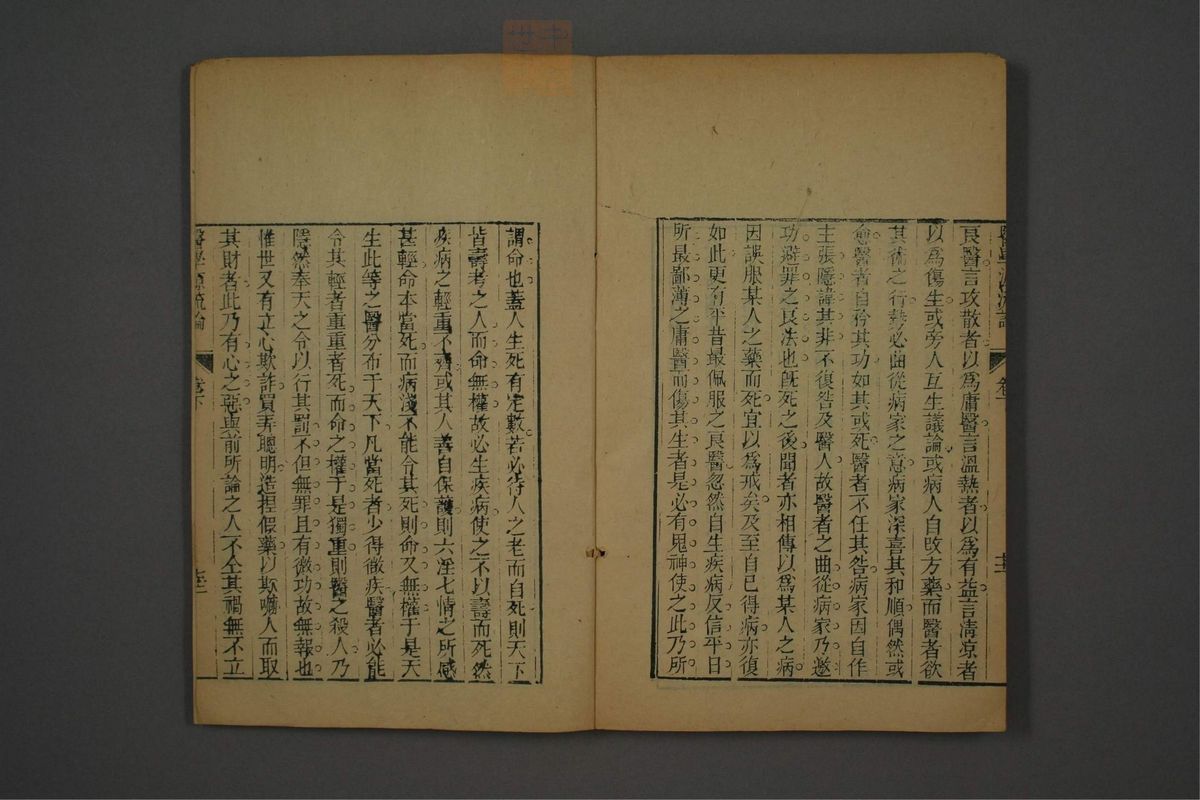 良醫言攻散者以爲庸醫言溫熱者以爲有益言清凉者
以爲傷生或旁人互生議論或病人自改方藥而醫者欲
其術之行勢必曲從病家之意病家深喜其和順偶然或
愈醫者自矜其功如其或死醫者不任其咎病家因自作
主張隱諱其非不復咎及醫人故醫者之曲從病家乃邀
功避罪之良法也旣死之後聞者亦相傳以爲某人之病
因誤服某人之藥而死宜以爲戒矣及至自已得病亦復
如此更有平昔最佩服之良醫忽然自生疾病反信平日
所最鄙薄之庸醫而傷其生者是必有鬼神使之此乃所
謂命也蓋人生死有定數若必待人之老而自死則天下
皆壽考之人而命無權故必生疾病使之不以壽而死然
疾病之輕重不齊或其人善自保護則六淫七情之所感
甚輕命本當死而病淺不能令其死則命又無權于是天
生此等之醫分布于天下凡當死者少得微疾醫者必能
令其輕者重重者死而命之權于是獨重則醫之殺人乃
隱然奉天之令以行其罰不但無罪且有微功故無報也
惟世又有立心欺詐買弄聰明造捏假藥以欺嚇人而取
其財者此乃有心之惡與前所論之人不仝其禍無不立
醫學源流論 卷下